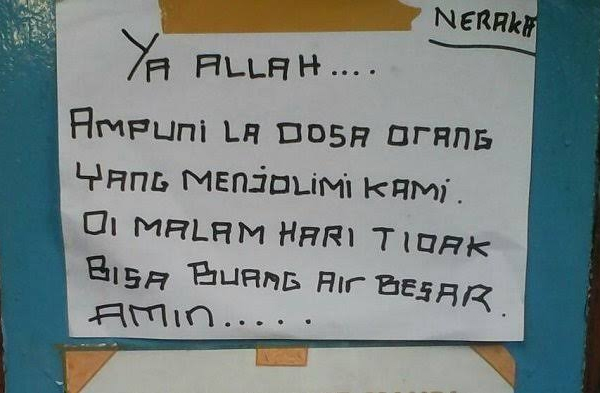 NERAKA
YA ALLAH....
AMPUNI LA DOSA ORANG
YANG MENJOLIMI KAMI.
DI MALAM HARI TIDAK
BISA BUANG AIR BESAR.
AMIN.....